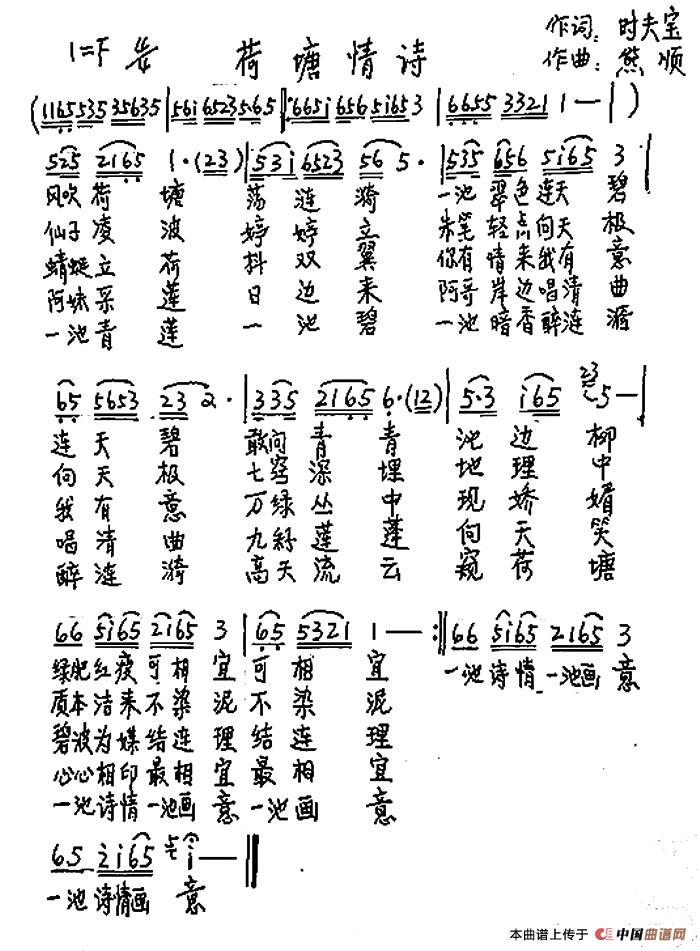 1=F 4/4 荷塘情诗 作词：时夫宝
作曲：熊顺
(1165 535 35635 | 56i 6523 5656 5 ‖: 665i 656 5i65 3 | 6655 3321 1 — | )
525 2165 1·(23) | 53i 6523 56 5· | 535 656 5i65 3 |
风吹荷塘荡涟漪一池翠色连天碧
仙子凌波婷婷立朱笔轻点向天极
蜻蜓立荷抖双翼你有情来我有意
阿妹采莲日边来阿哥岸边唱清曲
一池青莲一池碧一池暗香醉涟漪
65 5653 23 2· | 335 2165 6·(12) | 5·3 i65 235 — |
连天碧敢问青青池边柳
向天极七窍深埋地理中
我有意万绿丛中现娇婿
唱清曲九籽莲蓬向天笑
醉涟漪高天流云窥荷塘
66 5i65 2i65 3 | 65 5321 1 — :‖ 66 5i65 2i65 3 |
绿肥红瘦可相宜可相宜一池诗情一池画意
质本洁来不染泥不染泥
碧波为媒结连理结连理
心心相印最相宜最相宜
一池诗情一池画意一池画意
65 2i65 i — ‖
一池诗情画意
本曲谱上传于 中国曲谱网